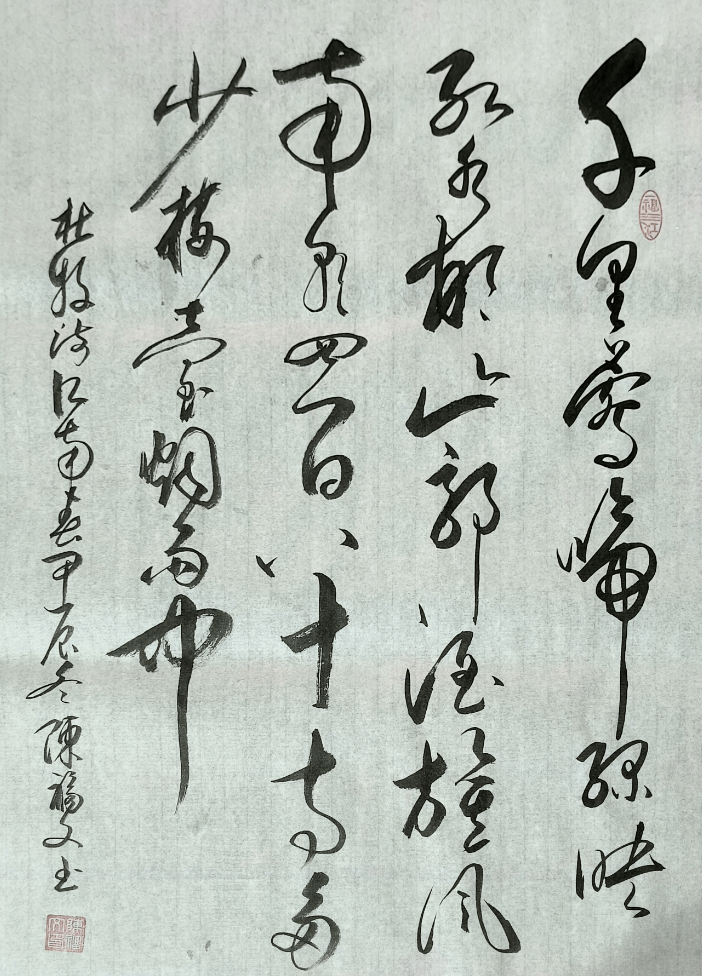 千里鶯啼綠映
紅水邨山郭酒旗風
南朝四百八十寺多
少樓臺烟雨中
杜牧詩江南春甲辰冬陳福文书